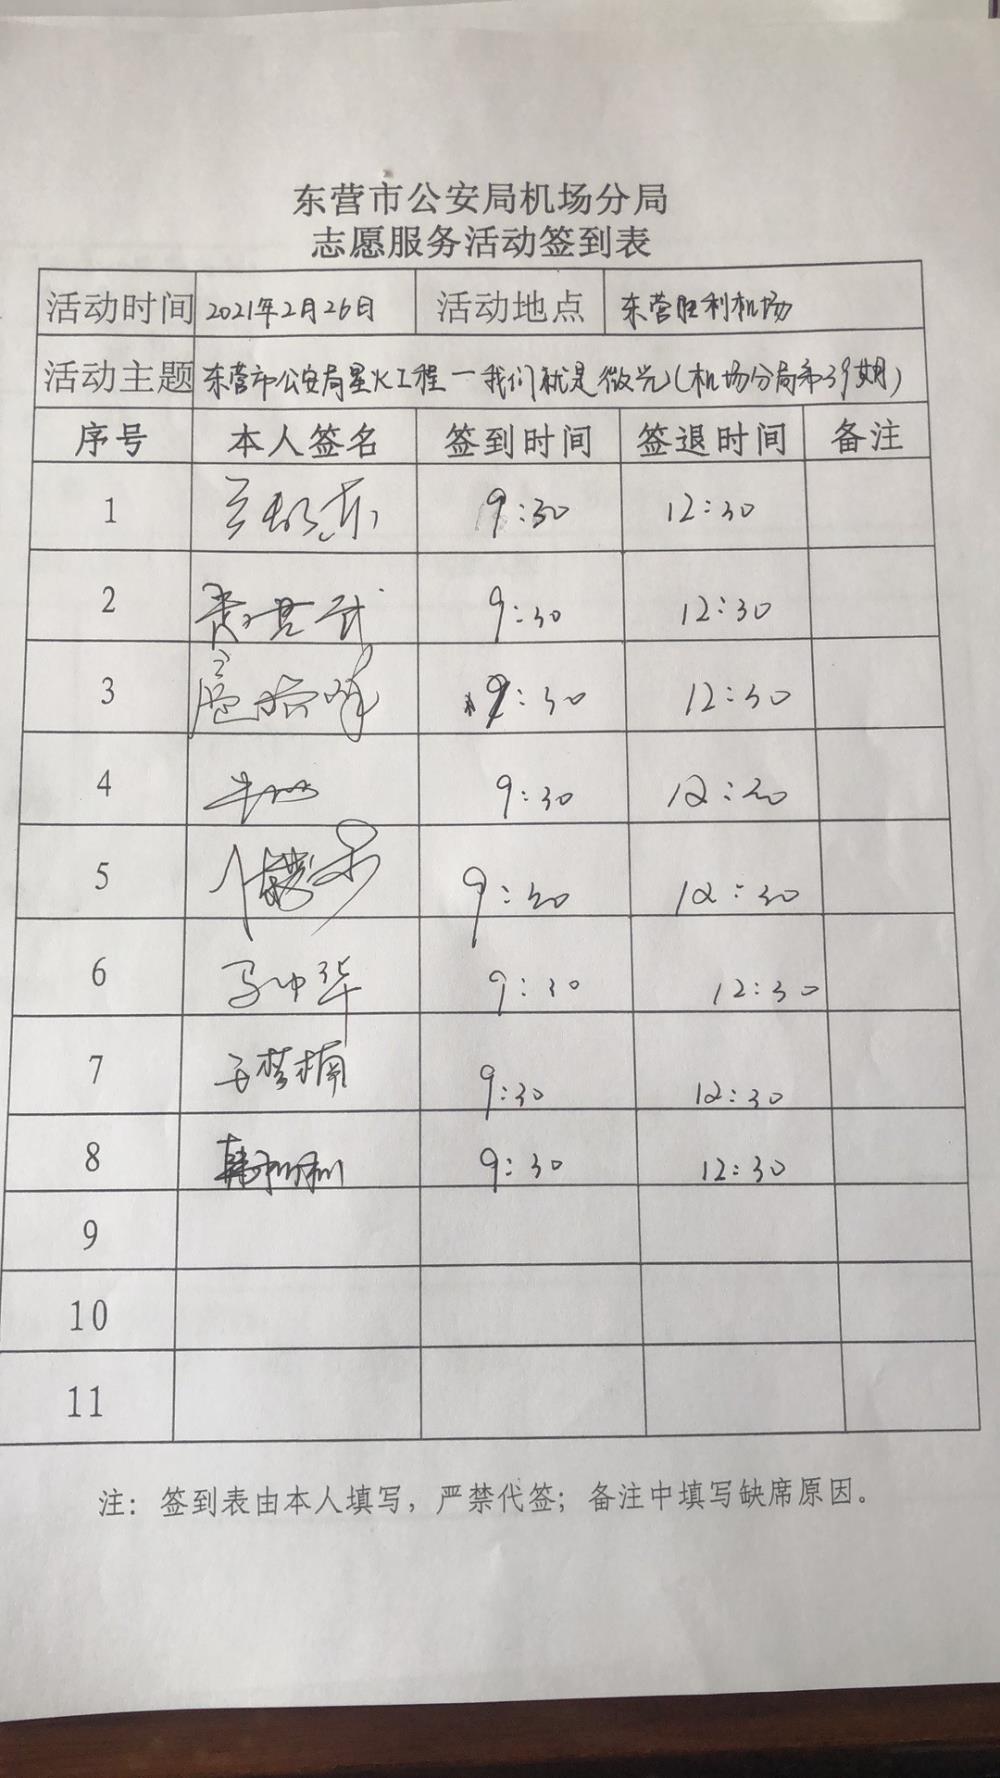 东营市公安局机场分局
志愿服务活动签到表
活动时间 2021年2月26日 活动地点 东营胜利机场
活动主题 东营市公安局星火工程—我们就是微光(机场分局第39期)
序号 本人签名 签到时间 签退时间 备注
1 9:30 12:30
2 9:30 12:30
3 9:30 12:30
4 9:30 12:30
5 9:30 12:30
6 马冲华 9:30 12:30
7 王梦楠 9:30 12:30
8 韩利利 9:30 12:30
9
10
11
注：签到表由本人填写，严禁代签；备注中填写缺席原因。